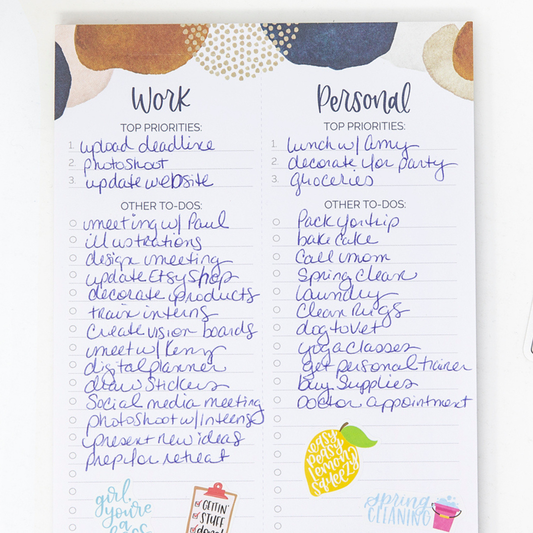 Work
TOP PRIORITIES:
1. upload deadline
2. photoshoot
3. update website
OTHER TO-DOS:
meeting w/ Paul
illustrations
design meeting
update Etsy Shop
decorate products
train interns
Create vision boards
meet w/ Kenny
digital planner
draw Stickers
Social media meeting
photoshoot w/ interns
present new ideas
prep for retreat
girl,
you're
a
GETTIN'
STUFF
done!
Personal
TOP PRIORITIES:
1. lunch w/ Amy
2. decorate for party
3. groceries
OTHER TO-DOS:
Pack for trip
bake cake
Call mom
Spring Clean
laundry
Clean Rugs
dog to vet
yoga classes
get personal trainer
buy Supplies
Doctor appointment
easy
peasy
lemon
squeezy
spring
CLEANING